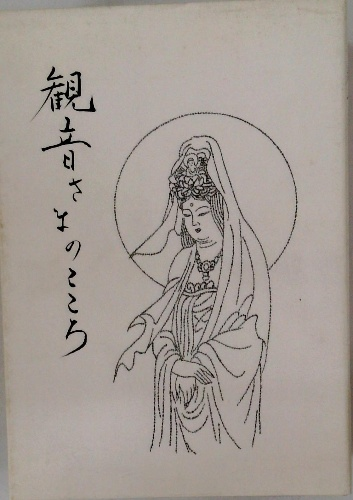 観音さまのこころ